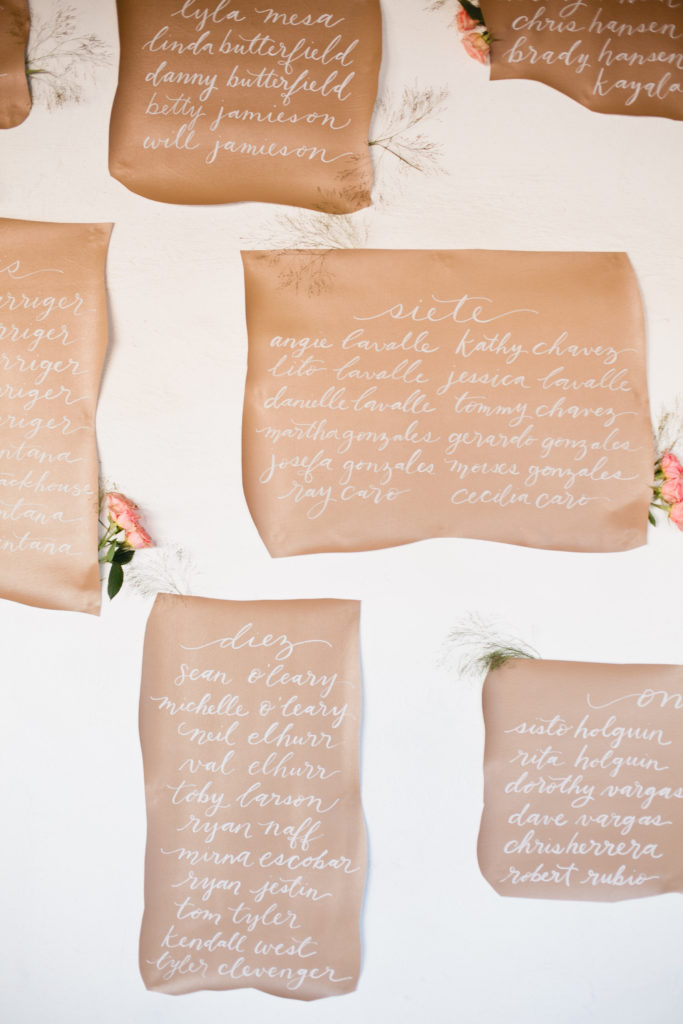 lyla mesa
linda butterfield
danny butterfield
betty jamieson
will jamieson
chris hansen
brady hansen
kayala
siete
angie lavalle kathy chavez
lito lavalle jessica lavalle
danielle lavalle tommy chavez
martha gonzales gerardo gonzales
josefa gonzales moises gonzales
ray caro cecilia caro
diez
sean o'leary
michelle o'leary
neil elhurr
val elhurr
toby larson
ryan naff
mirna escobar
ryan jestin
tom tyler
kendall west
tyler clevenger
on
sisto holguin
rita holguin
dorothy vargas
dave vargas
chris herrera
robert rubio